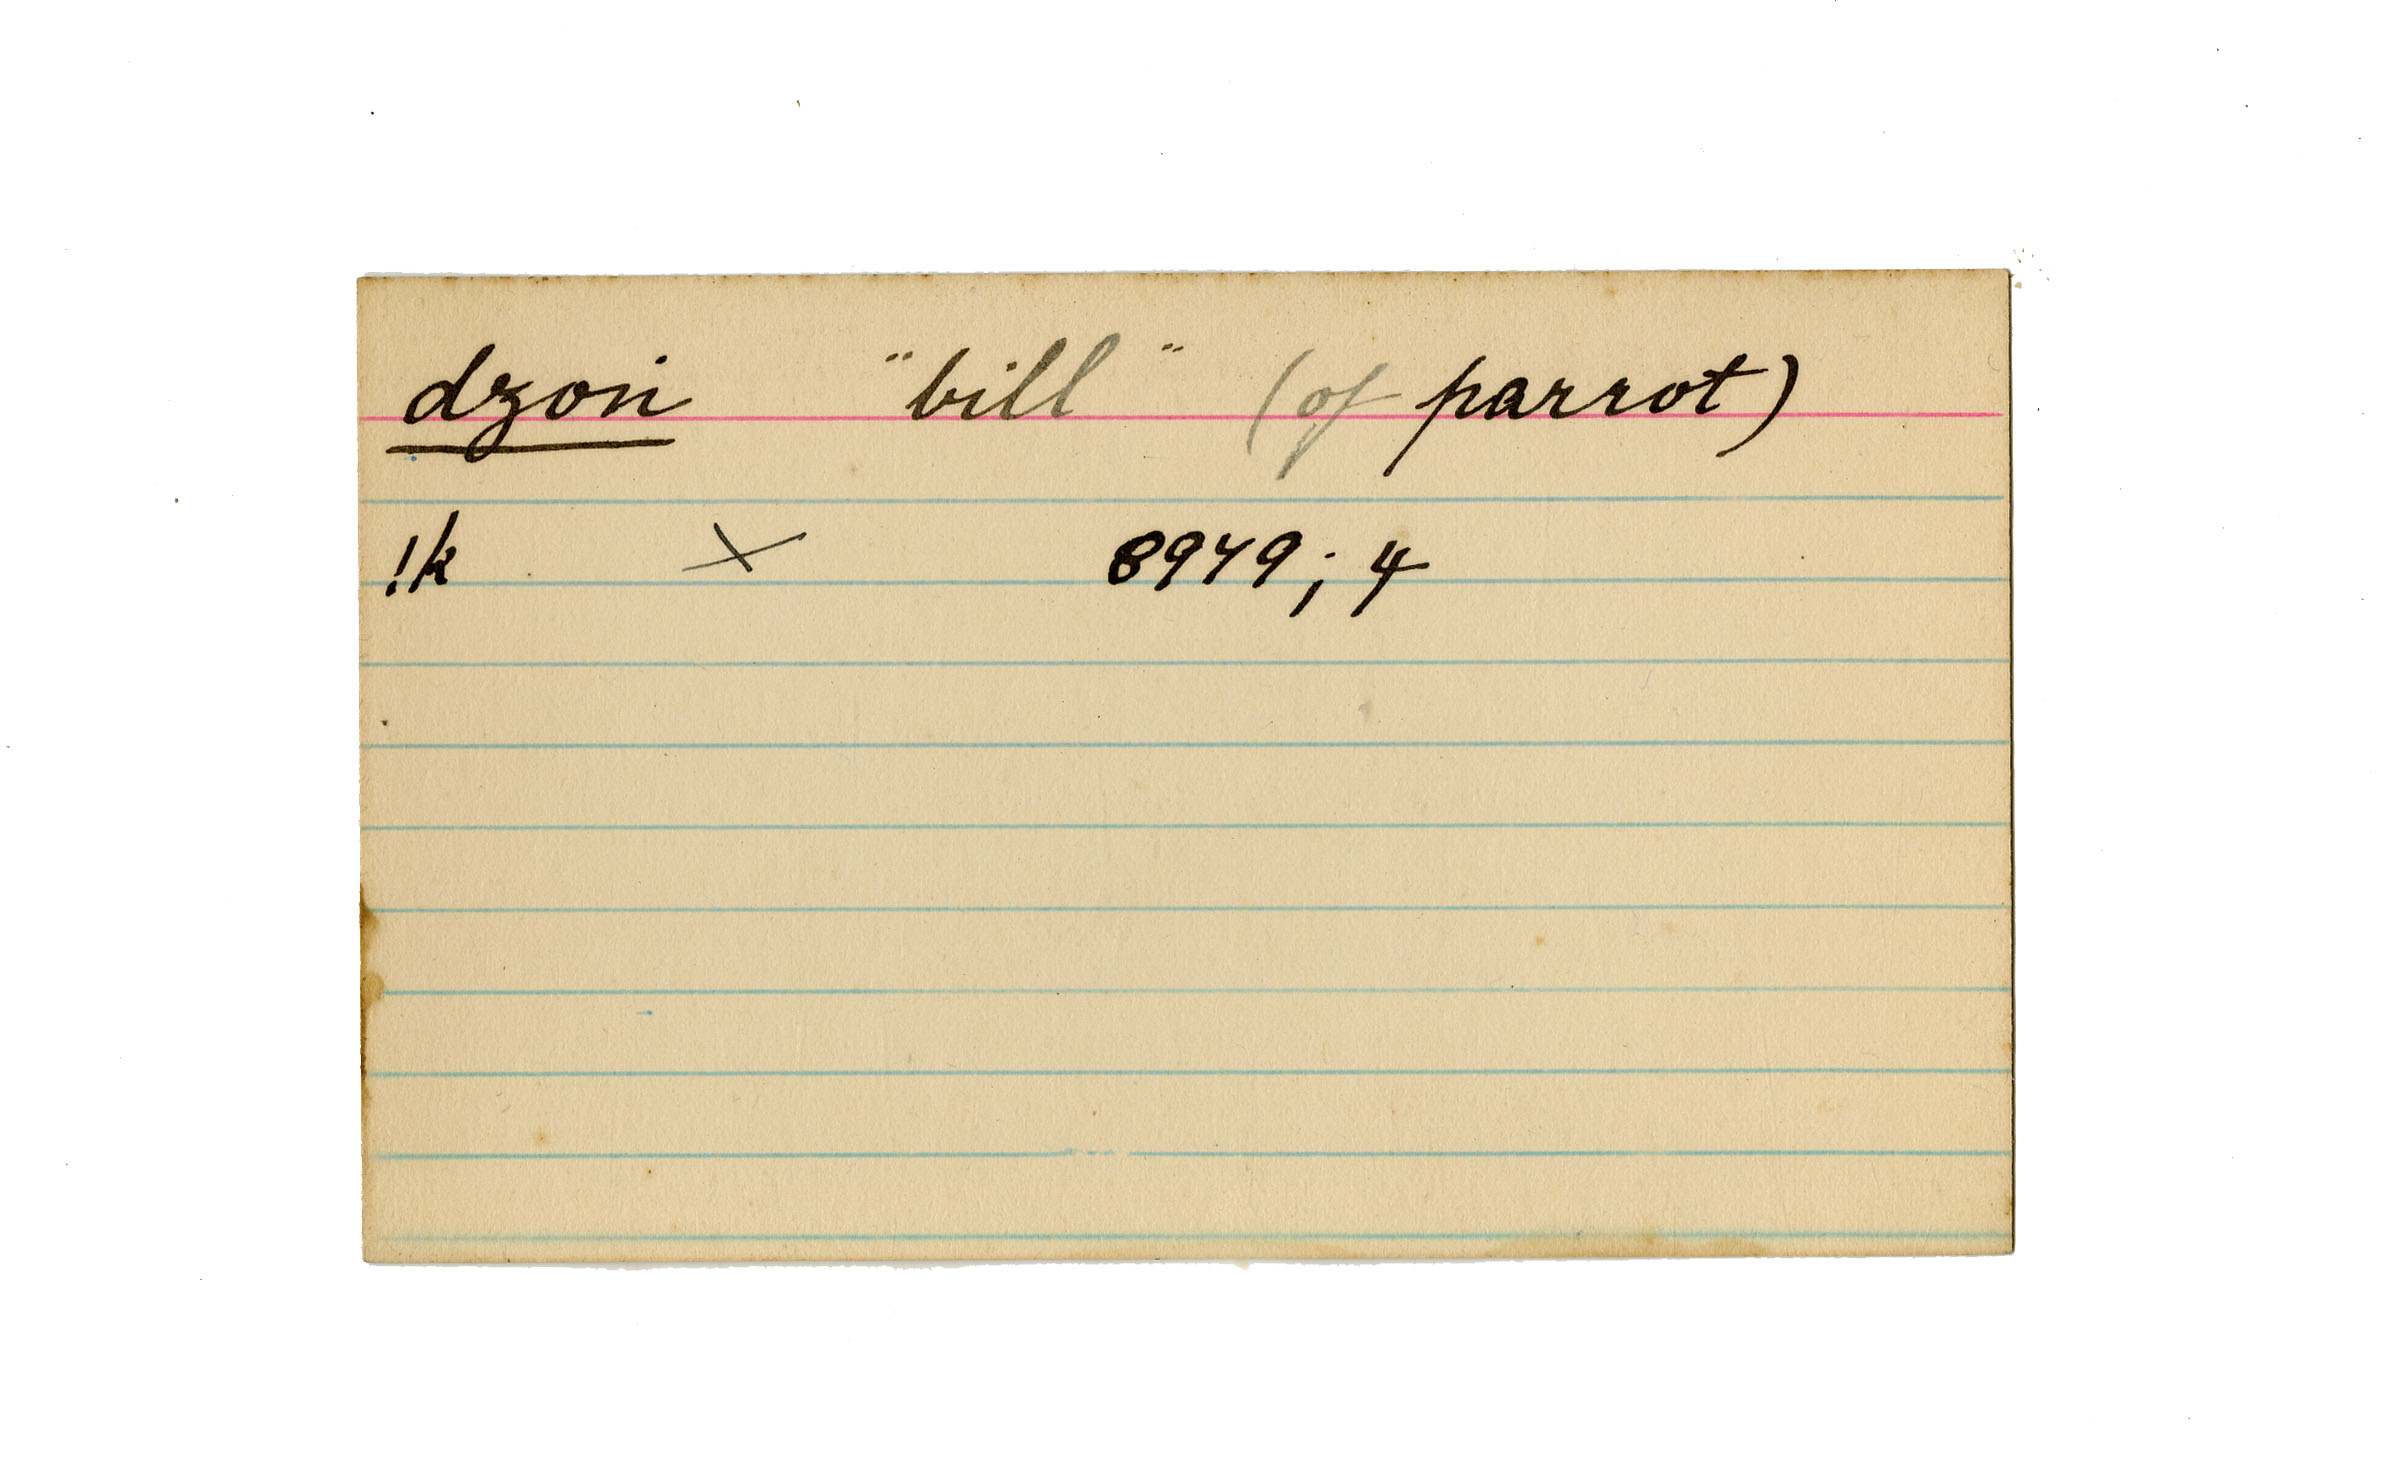 dzoni "bill" (of parrot)
!k × 8979; 4